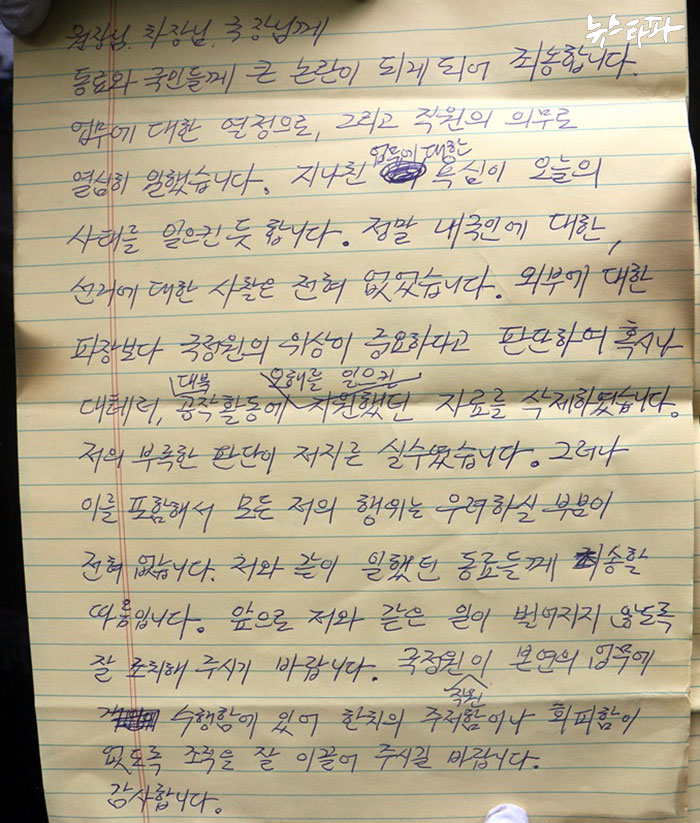 뉴스타파
원장님, 차장님, 국장님께
동료와 국민들께 큰 논란이 되게 되어 죄송합니다.
업무에 대한 열정으로, 그리고 직원의 의무로
업무에 대한
열심히 일했습니다. 지나친 욕심이 오늘의
사태를 일으킨 듯 합니다. 정말 내국인에 대한,
선거에 대한 사찰은 전혀 없었습니다. 외부에 대한
파장보다 국정원의 위상이 중요하다고 판단하여 혹시나
대북 오해를 일으킨
대테러, 공작활동에 지원했던 자료를 삭제하였습니다.
저의 부족한 판단이 저지른 실수였습니다. 그러나
이를 포함해서 모든 저의 행위는 우려하실 부분이
전혀 없습니다. 저와 같이 일했던 동료들께 죄송할
따름입니다. 앞으로 저와 같은 일이 벌어지지 않도록
잘 조치해 주시기 바랍니다. 국정원이 본연의 업무에
직원
수행함에 있어 한치의 주저함이나 회피함이
없도록 조직을 잘 이끌어 주시길 바랍니다.
감사합니다.